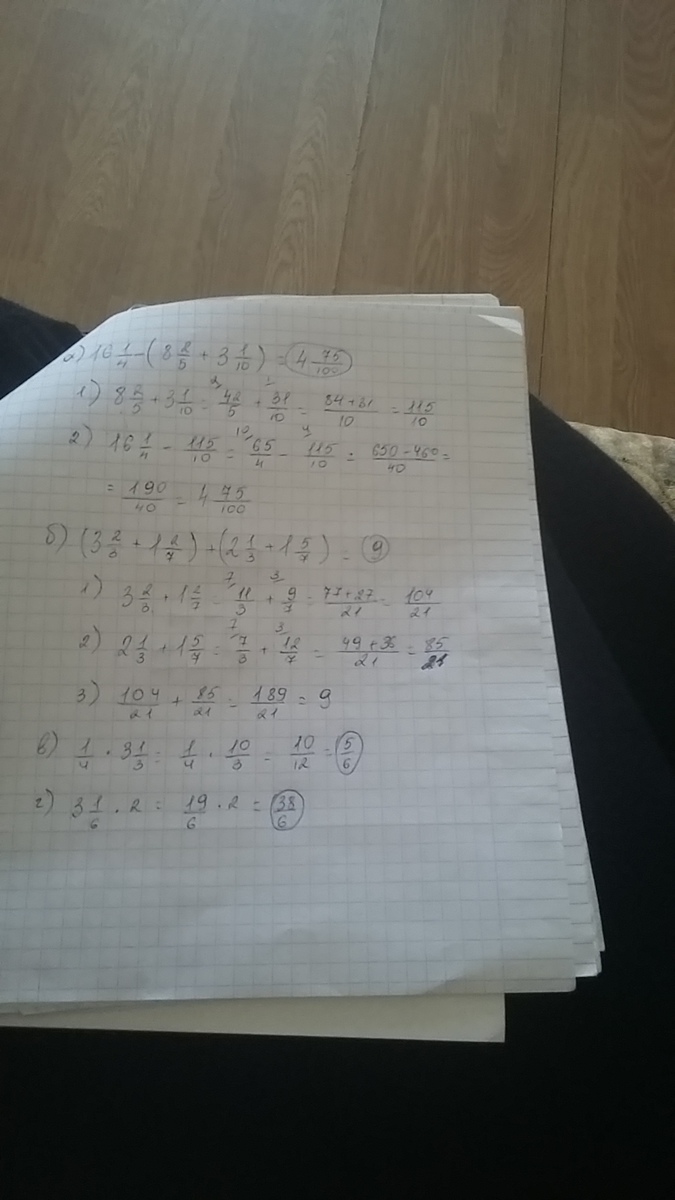 а) 16 1/4 - (8 2/5 + 3 1/10) = 4 75/100
1) 8 2/5 + 3 1/10 = 42/5 + 31/10 = 84+31/10 = 115/10
2) 16 1/4 - 115/10 = 65/4 - 115/10 = 650-460/40 =
= 190/40 = 4 75/100
б) (3 2/3 + 1 2/7) + (2 1/3 + 1 5/7) = 9
1) 3 2/3 + 1 2/7 = 11/3 + 9/7 = 77+27/21 = 104/21
2) 2 1/3 + 1 5/7 = 7/3 + 12/7 = 49+36/21 = 85/21
3) 104/21 + 85/21 = 189/21 = 9
в) 1/4 · 3 1/3 = 1/4 · 10/3 = 10/12 = 5/6
г) 3 1/6 · 2 = 19/6 · 2 = 38/6